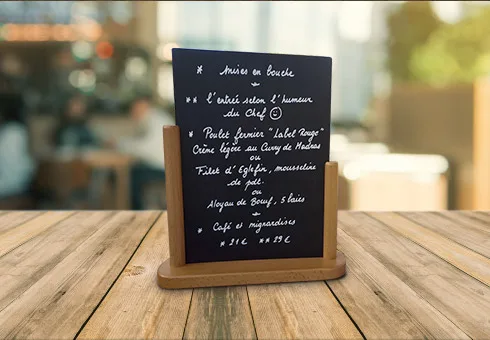 * Mises en bouche
** l'entrée selon l'humeur
du Chef ☺
* Poulet fermier "Label Rouge"
Crème légère au Curry de Madras
ou
Filet d'Eglefin, mousseline
de pdt.
ou
Aloyau de Boeuf, 5 baies
* Café et mignardises
* 21 € ** 29 €